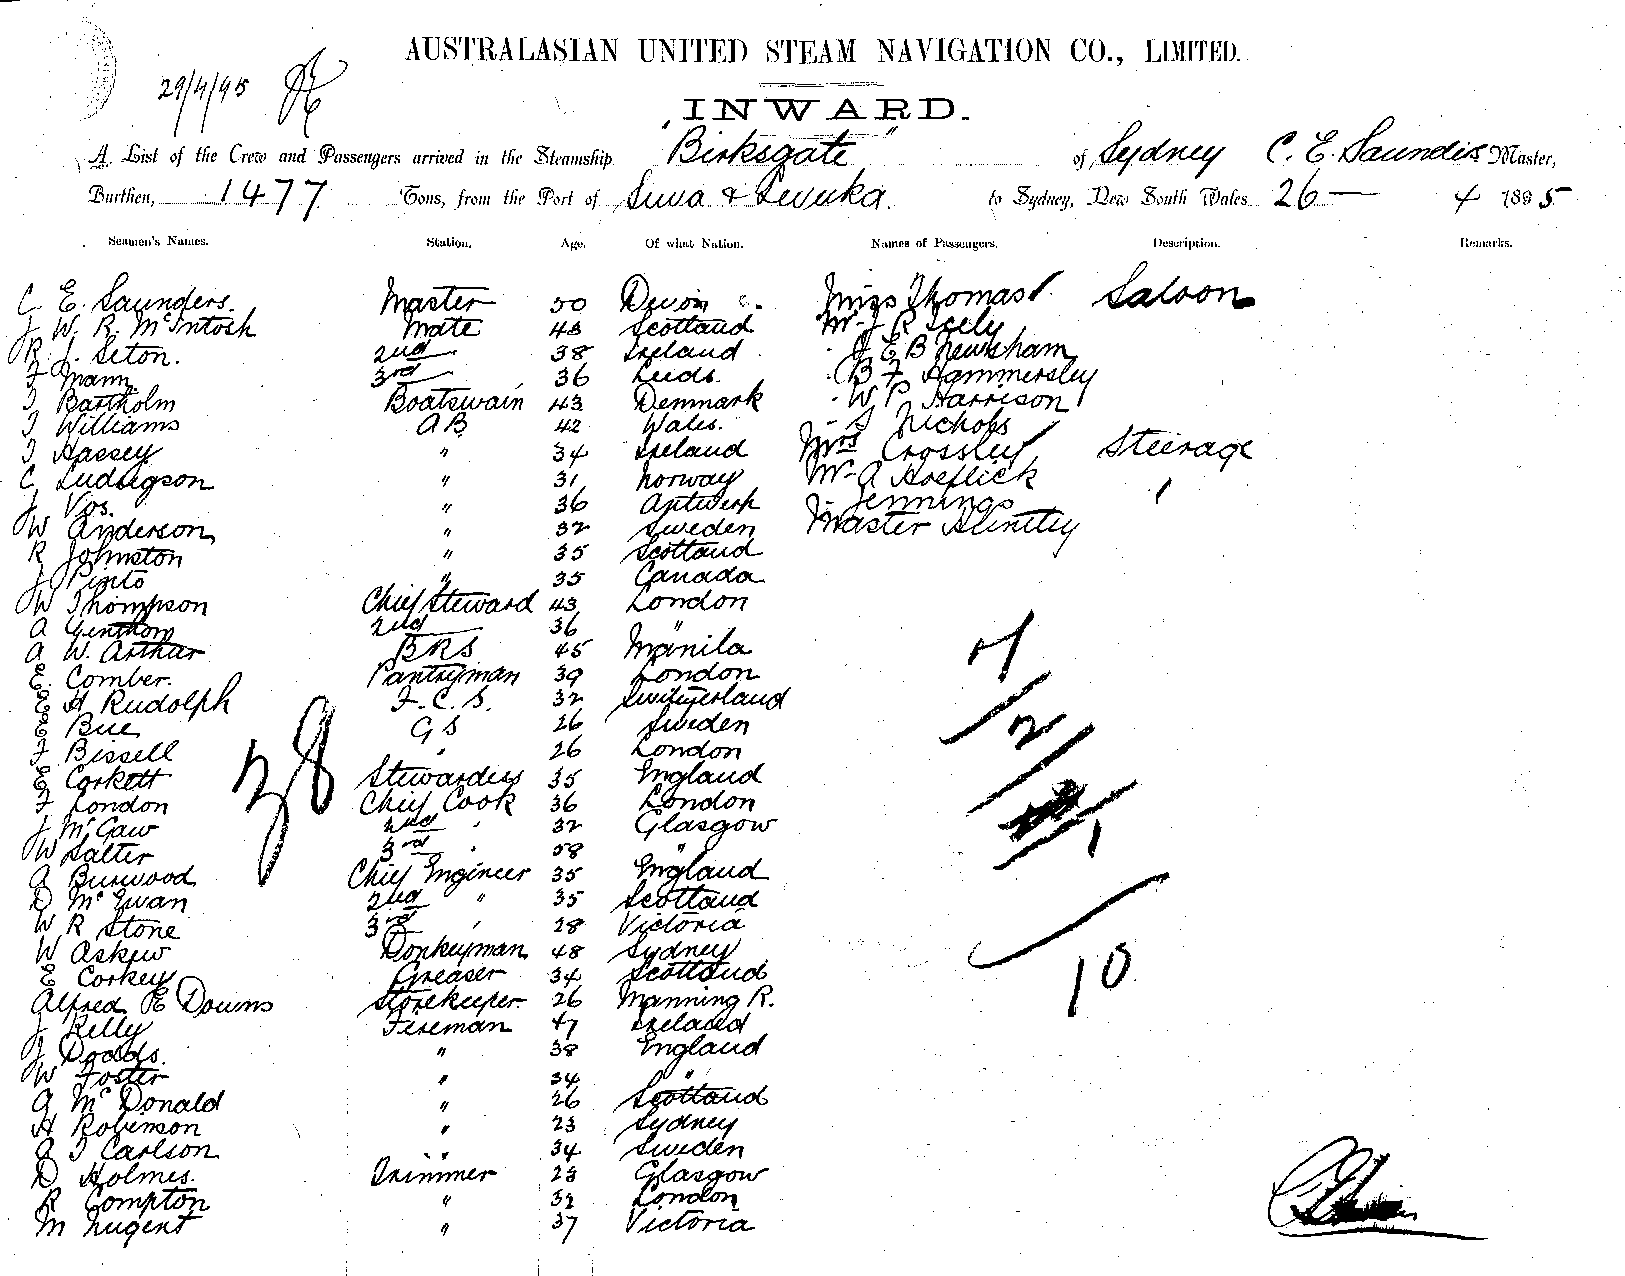 AUSTRALASIAN UNITED STEAM NAVIGATION CO., LIMITED.
29/4/95
INWARD.
A List of the Crew and Passengers arrived in the Steamship "Birksgate" of Sydney C. E. Saunders Master,
Burthen, 1477 Tons, from the Port of Suva & Levuka. to Sydney, New South Wales 26 — 4 1895
Seamen's Names. Station. Age. Of what Nation. Names of Passengers. Description. Remarks.
C E. Saunders. Master 50 Devon Miss Thomas Saloon
J W. R. McIntosh Mate 43 Scotland Mr J R
R. J. Seton. 2nd 38 Ireland E B Newsham
F Mann 3rd 36 Leeds. B F Hammersley
J Bartholm Boatswain 43 Denmark W P Harrison
J Williams AB 42 Wales. Nichols
J Hassey " 34 Ireland Mrs Crossley Steerage
C Ludvigson " 31 Norway Mr A Hoeflick
J Vos. " 36 Antwerk Jennings
W Anderson " 32 Sweden Master
R Johnston " 35 Scotland
J Pinto " 35 Canada
W Thompson Chief Steward 43 London
A 2nd 36 "
A W. Arthur BRS 45 Manila
E. Comber. Pantryman 39 London
E H Rudolph F.C.S. 32 Switzerland
E Bue GS 26 Sweden
F Bissell " 26 London
E Corkett Stewardess 35 England
F London Chief Cook 36 London
J McGaw 2nd " 32 Glasgow
W Salter 3rd " 58 "
A Burwood Chief Engineer 35 England
D McEwan 2nd " 35 Scotland
W R Stone 3rd " 28 Victoria
W Askew Donkeyman 48 Sydney
E Corkey Greaser 34 Scotland
Alfred E Downs Storekeeper 26 Manning R.
J Kelly Fireman 47 Ireland
J Dodds. " 38 England
W Foster " 34 "
A McDonald " 26 Scotland
H Robinson " 23 Sydney
A J Carlson " 34 Sweden
D Holmes. Trimmer 23 Glasgow
R Compton " 32 London
M Nugent " 37 Victoria
38
7
/2
/1
10